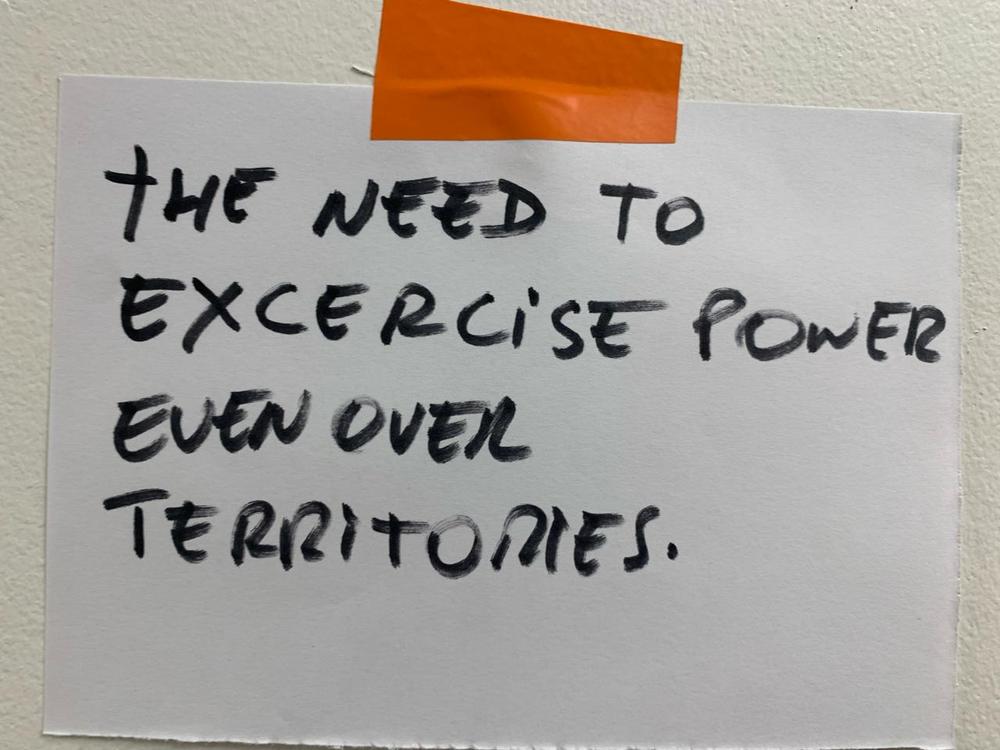 THE NEED TO
EXCERCiSE POWER
EVEN OVER
TERRiTORIES.